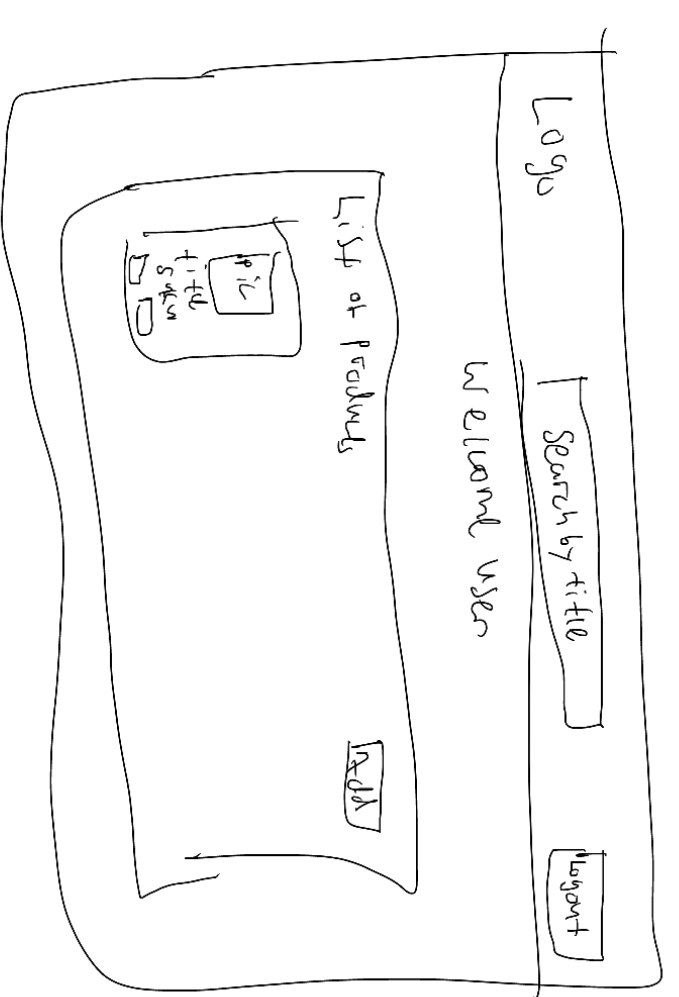 Logo
Search by title
Logout
Welcome user
List of products
Add
Pic
title